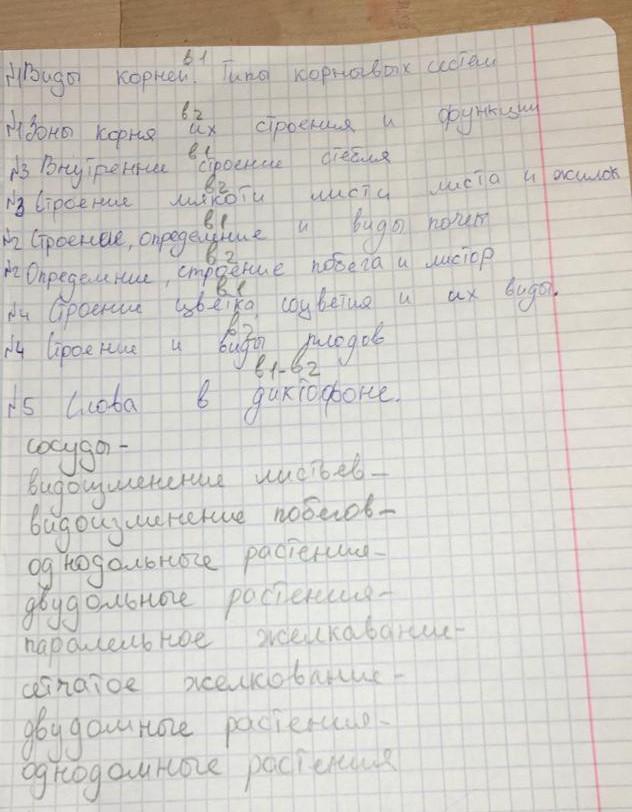 в1
№1 Виды корней. Типы корневых систем
в2
№1 Зоны корня их строения и функции
в1
№3 Внутренние строение стебля
в2
№3 Строение мякоти листи листа и жилок
в1
№2 Строение, определение и виды почек
в2
№2 Определние, строение побега и листор
в1
№4 Строение цветка, соцветия и их виды.
в2
№4 Строение и виды плодов
в1-в2
№5 Слова в диктофоне.
сосуды-
видоизменение листьев-
видоизменение побегов-
однодольные растения-
двудольные растения-
паралельное желкавание-
сетчатое желкование-
двудомные растения-
однодомные растения